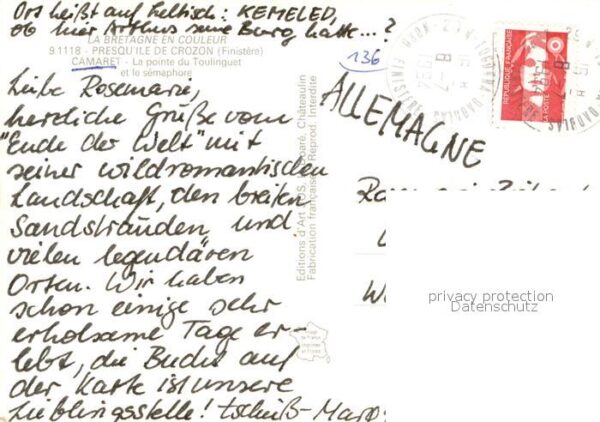 Ort heißt auf Keltisch: KEMELED,
ob hier Arthus seine Burg hatte...?
LA BRETAGNE EN COULEUR
9.1118 - PRESQU'ILE DE CROZON (Finistère)
CAMARET - La pointe du Toulinguet
et le sémaphore
136
Liebe Rosemarie,
herzliche Grüße vom
"Ende der Welt" mit
seiner wildromantischen
Landschaft, den breiten
Sandstränden und
vielen legendären
Orten. Wir haben
schon einige sehr
erholsame Tage er-
lebt, die Bucht auf
der Karte ist unsere
Lieblingsstelle! tschüß-
Editions d'Art JOS, Châteaulin
Fabrication française Reprod. Interdite
ALLEMAGNE
REPUBLIQUE FRANÇAISE
privacy protection
Datenschutz